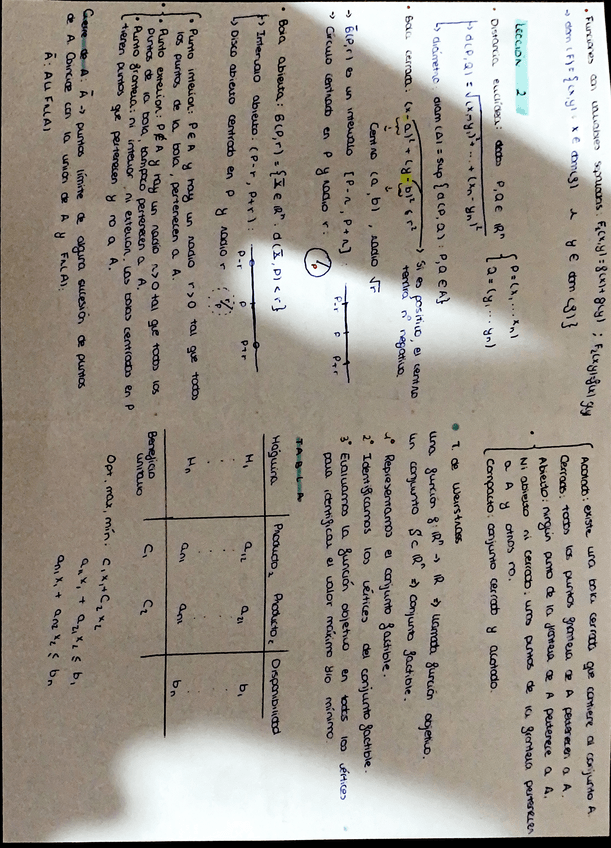 • Funciones con variables separadas: F(x,y)=f(x)+g(y); F(x,y)=f(x)·g(y)
→ dom(F)={(x,y): x ∈ dom(f) y ∈ dom(g)}
LECCIÓN 2
• Distancia euclídea: dados P,Q ∈ ℝⁿ { P=(x₁,...,xₙ) Q=(y₁,...,yₙ)
↳ d(P,Q)=√(x₁-y₁)²+...+(xₙ-yₙ)²
↳ diámetro: diam(A)=sup{d(P,Q): P,Q ∈ A}
• Bola cerrada: (x-a)²+(y-b)² ≤ r² → Si es positivo, el centro tendrá nº negativo.
Centro (a,b), radio √r
→ B̄(P,r) es un intervalo [P-r, P+r]: P-r P P+r
→ Círculo centrado en P y radio r:
• Bola abierta: B(P,r)={X̄ ∈ ℝⁿ: d(X̄,P)<r}
↳ Intervalo abierto: (P-r, P+r): P-r P P+r
↳ Disco abierto centrado en P y radio r
• Punto interior: P∈A y hay un radio r>0 tal que todos
los puntos de la bola, pertenecen a A.
• Punto exterior: P∉A y hay un radio r>0 tal que todos los
puntos de la bola tampoco pertenecen a A.
• Punto frontera: ni interior, ni exterior. Las bolas centradas en P
tienen puntos que pertenecen y no a A.
Cierre de A: Ā → puntos límite de alguna sucesión de puntos
de A. Coincide con la unión de A y Fr(A):
Ā: A ∪ Fr(A)
Acotado: existe una bola cerrada que contiene al conjunto A.
Cerrado: todos los puntos frontera de A pertenecen a A.
Abierto: ningún punto de la frontera de A pertenece a A.
Ni abierto ni cerrado: unos puntos de la frontera pertenecen
a A y otros no.
Compacto: conjunto cerrado y acotado.
• T. de Weirstrass
una función f: ℝⁿ → ℝ ⇒ llamada función objetivo.
un conjunto S ⊂ ℝⁿ ⇒ conjunto factible.
1º Representamos el conjunto factible.
2º Identificamos los vértices del conjunto factible.
3º Evaluamos la función objetivo en todos los vértices
para identificar el valor máximo y/o mínimo.
TABLA
Máquina Producto₁ Producto₂ Disponibilidad
M₁ a₁₂ a₂₁ b₁
Mₙ aₙ₁ aₙ₂ bₙ
Beneficio unitario C₁ C₂
Opt. max, mín: C₁x₁+C₂x₂
a₁₁x₁ + a₂₁x₂ ≤ b₁
aₙ₁x₁ + aₙ₂x₂ ≤ bₙ